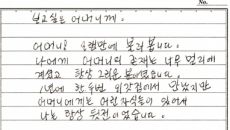 No.
보고싶은 어머니께.
어머니! 오랜만에 불러 봅니다.
나에게 어머니의 존재는 너무 멀리에
계셨고 항상 그리운 분이었습니다.
1년에 한두번 외갓집에서 만났지만
어머니에게는 어린 자식들이 있어서
나는 항상 뒷전이었습니다.